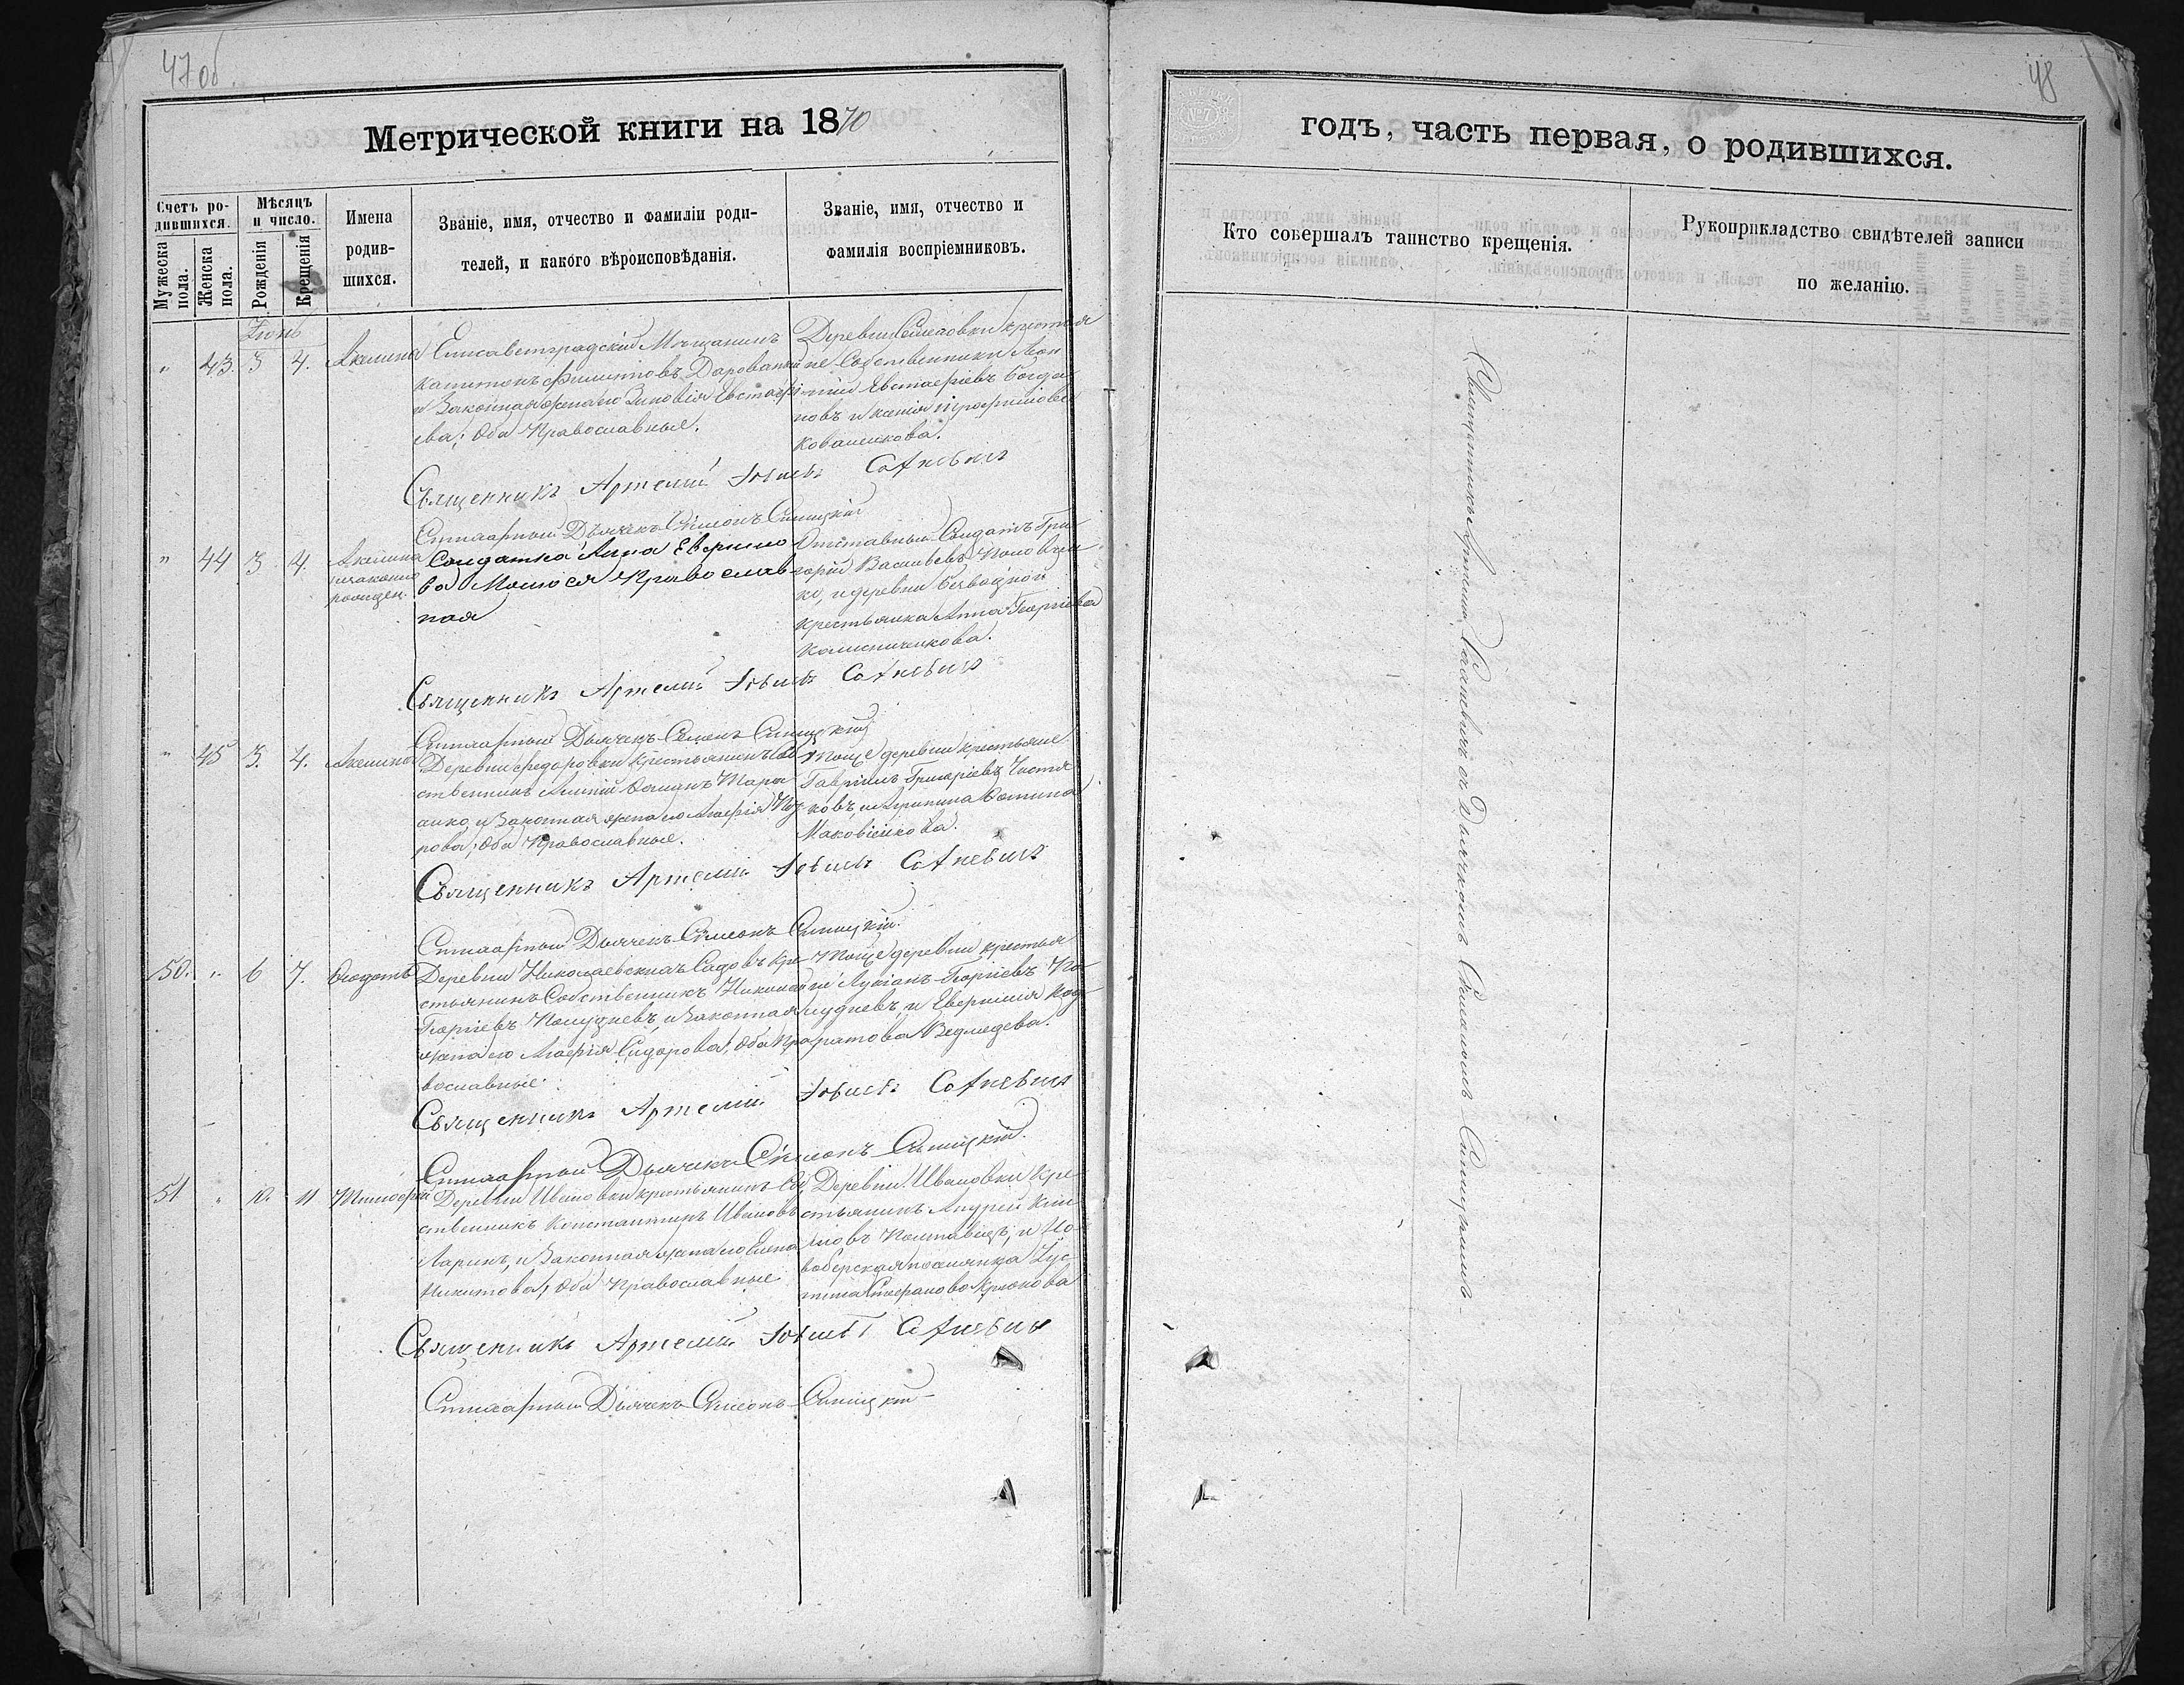 47 об
Метрической книги на 1870
Счетъ ро-
дившихся.
Мѣсяцъ
и число.
Имена
родив-
шихся.
Званіе, имя, отчество и фамиліи роди-
телей, и какого вѣроисповѣданія.
Званіе, имя, отчество и
фамилія воспріемниковъ.
Мужеска
пола.
Женска
пола.
Рожденія
Крещенія
Іюнь
" 43. 3 4. Акилина
Елисаветградскій Мѣщанинъ
Капитонъ Филиповъ
и Законная жена его Зиновія Евстафі-
ева; Оба Православные.
Деревни крестья
не Собственники Леон
тій Евстафіевъ Богда
новъ и Ксенія Трофимова
Коваленкова.
Священникъ Артемій Іовлевъ Саткевичъ
Стихарный Дьячекъ Симеонъ Синицкій
" 44 3 4. Акилина
незаконно
рожден.
Солдатка Анна Ефимо
ва Православ
ная
Отставный Солдатъ Гри
горій Васильевъ
ко, и деревни
крестьянка Анна Георгіева
Калиниченкова.
Священникъ Артемій Іовлевъ Саткевичъ
Стихарный Дьячекъ Симеонъ Синицкій
" 45 3. 4. Акилина
Деревни Федоровки Крестьянинъ Соб
ственникъ Тара
анко, и Законная жена его Агафія
рова; Оба Православные.
Тойже деревни крестьяне
Гавріилъ Григоріевъ
ковъ, и Агрипина Фомина
Маковіенкова.
Священникъ Артемій Іовлевъ Саткевичъ
Стихарный Дьячекъ Симеонъ Синицкій.
50. " 6 7. Феодотъ
Деревни Николаевскихъ Садовъ Кре
стьянинъ Собственникъ Николай
Георгіевъ Полудневъ, и Законная
жена его Агафія Сидорова; Оба Пра
вославные.
Тойже деревни крестья
не Лукіанъ Георгіевъ По
лудневъ, и Евфимія Код
ратова Ведмедева.
Священникъ Артемій Іовлевъ Саткевичъ
Стихарный Дьячекъ Симеонъ Синицкій.
51 " 10. 11 Тимофей
Деревни Ивановки крестьянинъ Соб
ственникъ Константинъ Ивановъ
Ларинъ, и Законная жена его Елена
Никитова; Оба Православные
Деревни Ивановки Кре-
стьянинъ Андрей
Полтавецъ, и Но-
поселянка Іус-
тина Стефанова Крюкова
Священникъ Артемій Іовлевъ Саткевичъ
Стихарный Дьячекъ Симеонъ Синицкій
48
годъ, часть первая, о родившихся.
Кто совершалъ таинство крещенія.
Рукоприкладство свидѣтелей записи
по желанію.
Священникъ Артемій Саткевичъ съ Дьячкомъ Симеономъ Синицкимъ